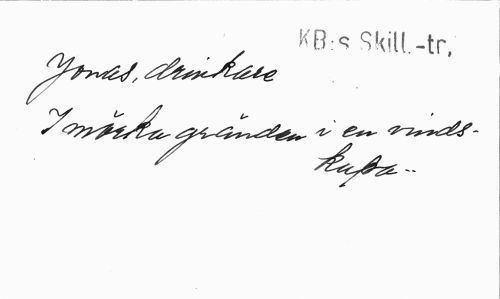 KB:s Skill.-tr.
Jonas, drinkare
I mörka gränden i en vinds-
kupa..